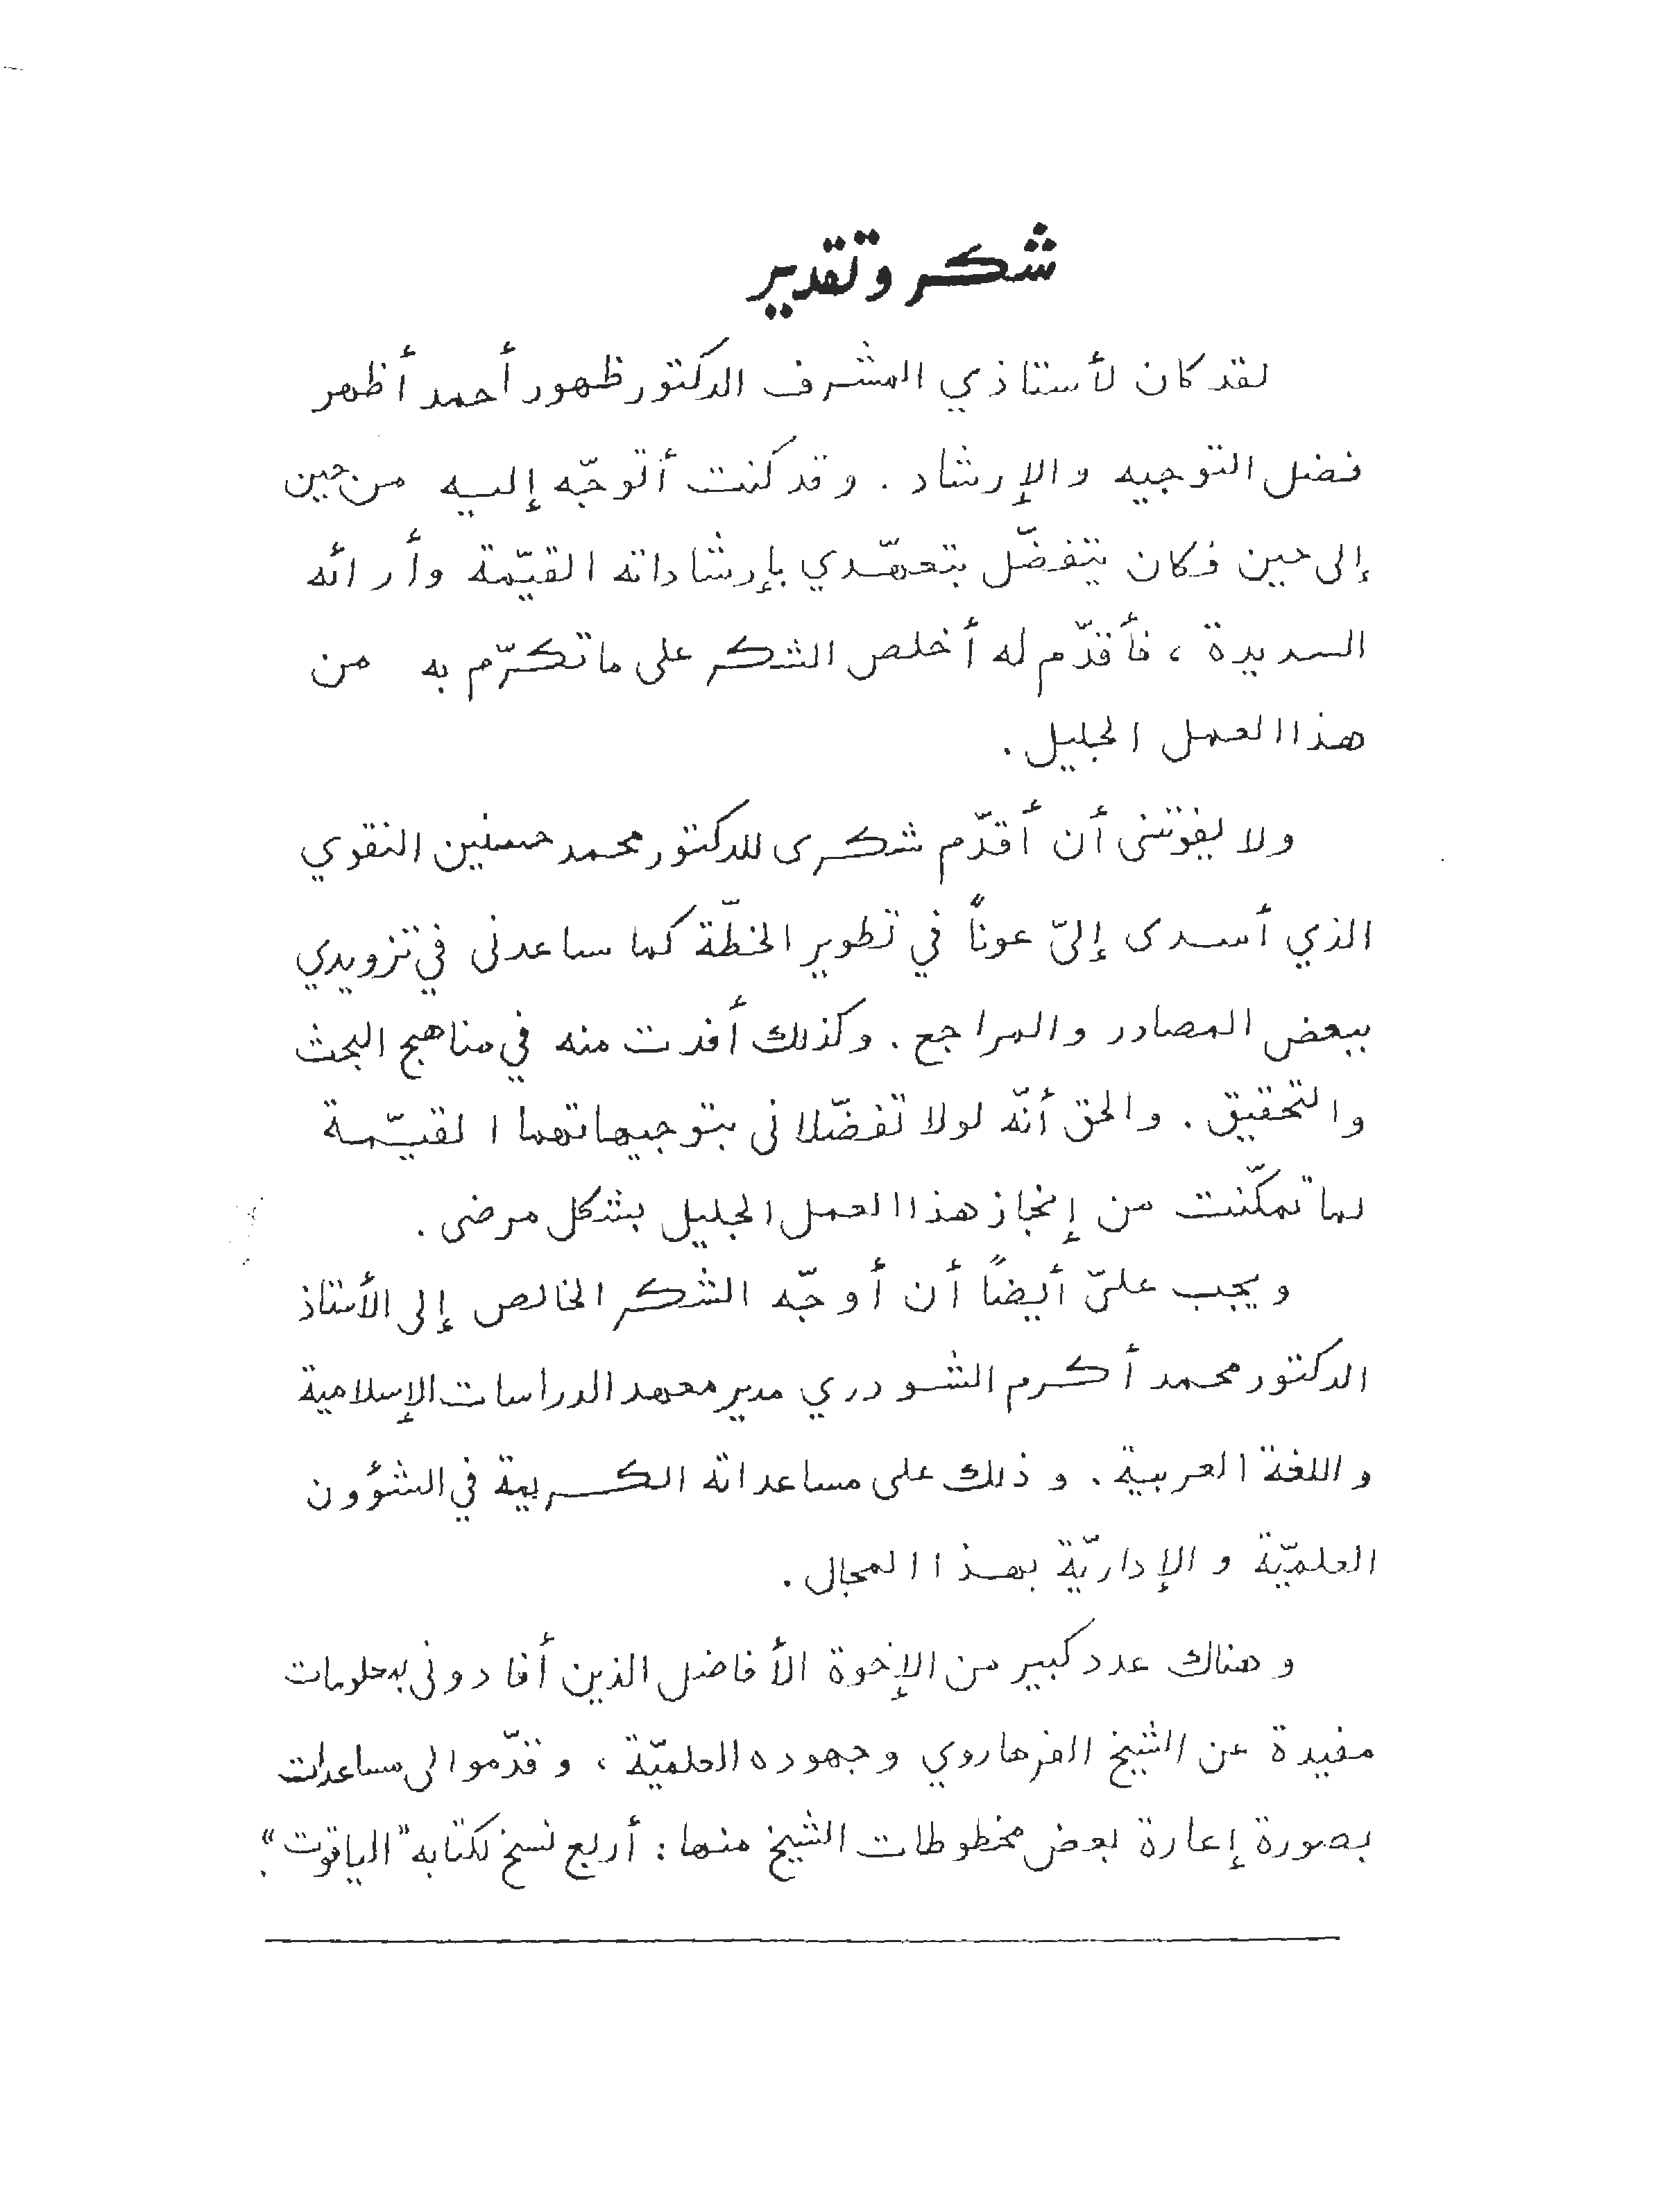 شكر وتقدير
لقد كان لأستاذي المشرف الدكتور ظهور أحمد أظهر
فضل التوجيه والإرشاد . وقد كنت أتوجّه إليه من حين
إلى حين فكان يتفضّل بتعهّدي بإرشاداته القيّمة وأرائه
السديدة ، فأقدّم له أخلص الشكر على ما تكرّم به من
هذا العمل الجليل .
ولا يفوتنى أن أقدّم شكرى للدكتور محمد حسنين النقوي
الذي أسدى إليّ عوناً في تطوير الخطّة كما ساعدنى في تزويدي
ببعض المصادر والمراجع . وكذلك أفدت منه في مناهج البحث
والتحقيق . والحق أنّه لولا تفضّلانى بتوجيهاتهما القيّمة
لما تمكّنت من إنجاز هذا العمل الجليل بشكل مرضى .
ويجب علىّ أيضاً أن أوجّه الشكر الخالص إلى الأستاذ
الدكتور محمد أكرم الشودري مدير معهد الدراسات الإسلامية
واللغة العربية . وذلك على مساعداته الكريمة في الشؤون
العلميّة والإداريّة بهذا المجال .
وهناك عدد كبير من الإخوة الأفاضل الذين أفادونى بمعلومات
مفيدة عن الشيخ الفرهاروي وجهوده العلميّة ، وقدّموا لى مساعدات
بصورة إعارة بعض مخطوطات الشيخ منها : أربع نسخ لكتابه "الياقوت" .